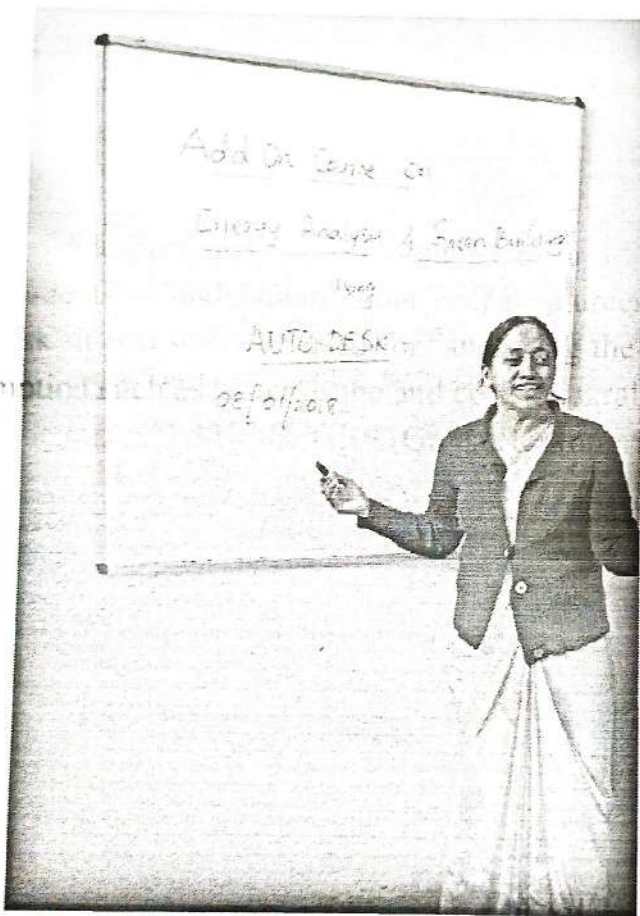 Add On Course on
Energy Analysis & Green Building
Using
AUTO-DESK
08/01/2018